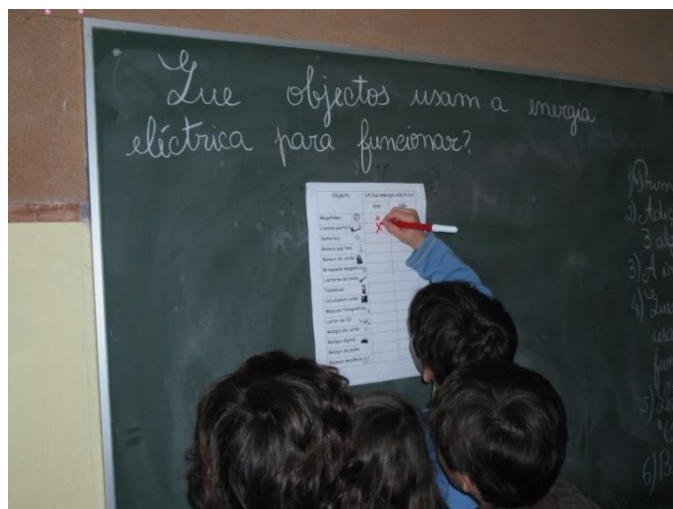 Que objectos usam a energia
eléctrica para funcionar?
Objecto Utiliza energia eléctrica
Sim Não
Magalhães
Game boy
Boneca que fala
Boneco de corda
Brinquedo magnético
Lanterna de bolso
Telemóvel
Calculadora solar
Máquina fotográfica
Leitor de CD
Relógio de corda
Relógio digital
Relógio de pulso
Balança mecânica
1)
2)
3) A
4) Que
5)
6)